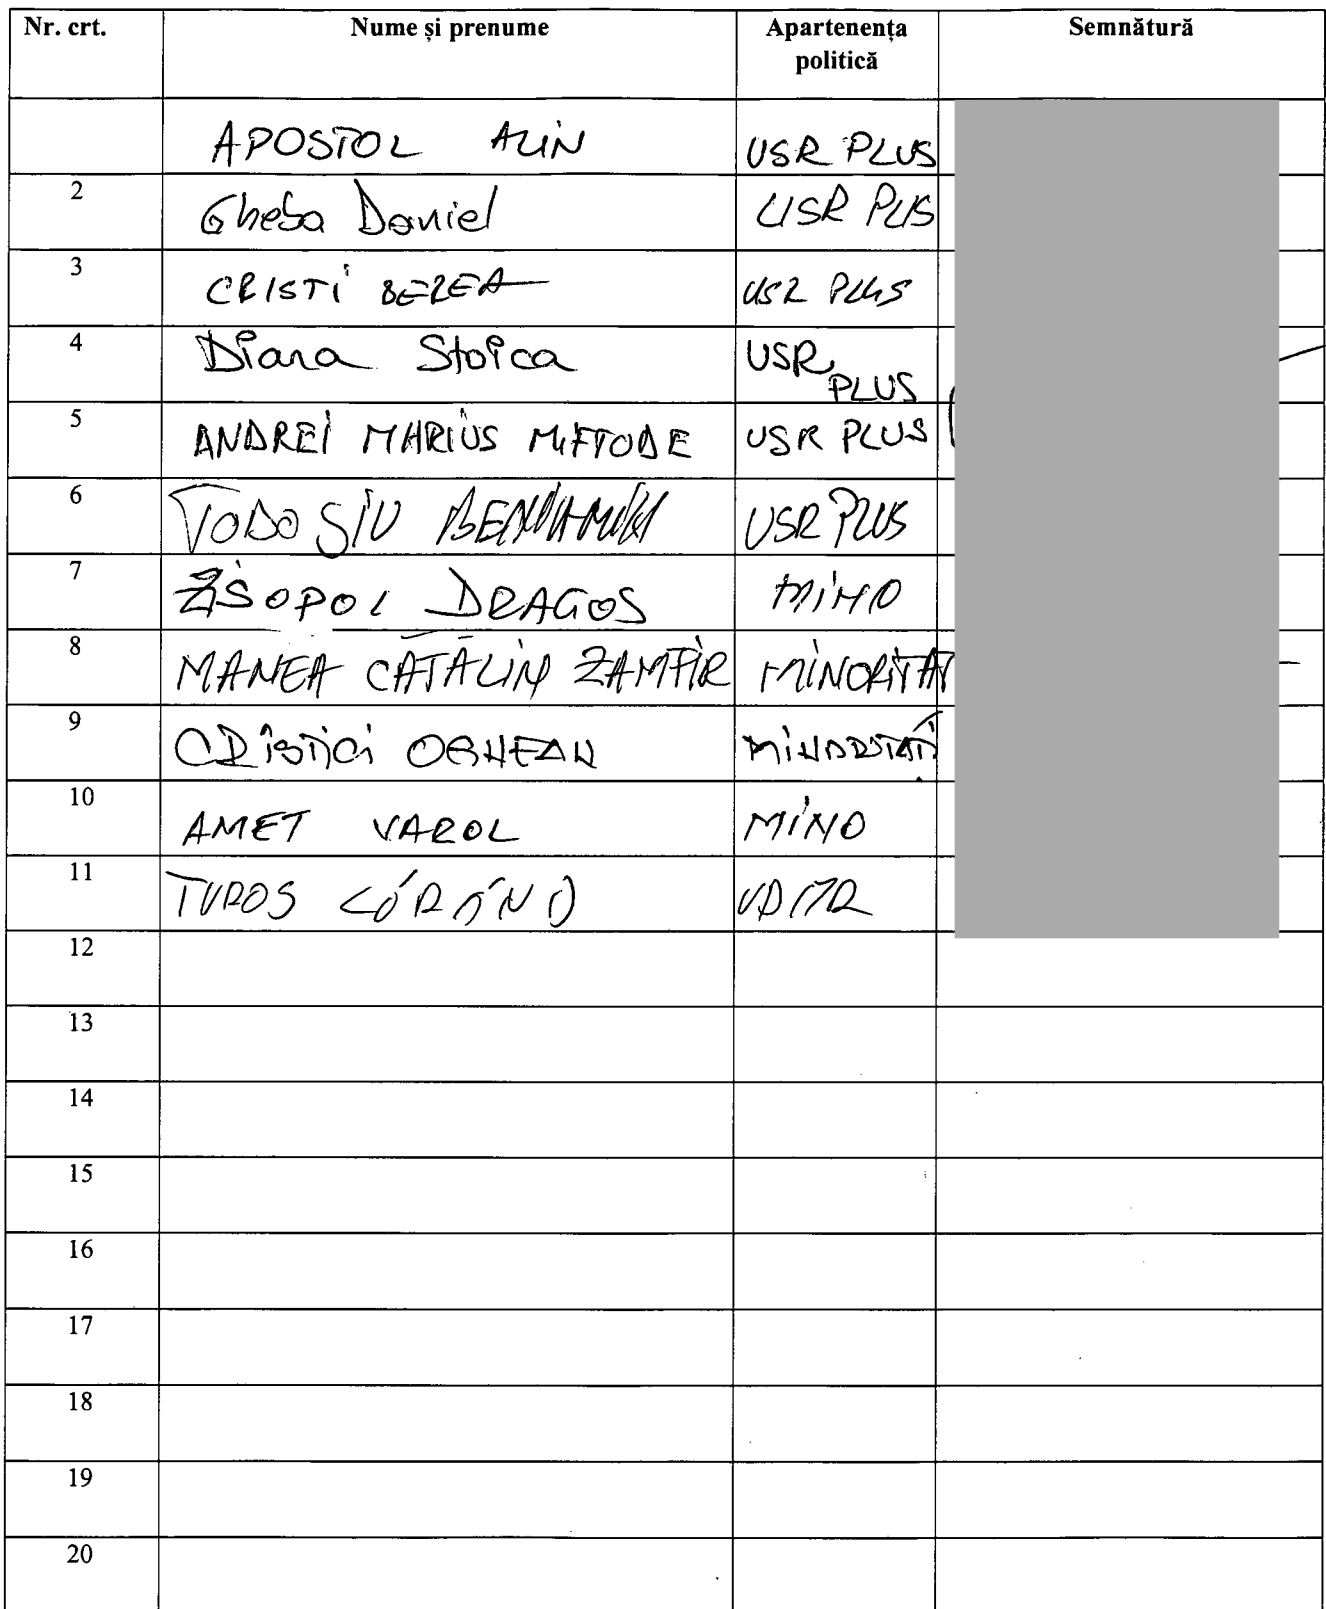 Nr. crt. Nume și prenume Apartenența politică Semnătură
APOSTOL ALIN USR PLUS
2 Gheba Daniel USR PLUS
3 CRISTI BEREA USR PLUS
4 Diana Stoica USR PLUS
5 ANDREI MARIUS MIFTODE USR PLUS
6 TODOSIU BENIAMIN USR PLUS
7 ZISOPOL DRAGOS MINO
8 MANEA CĂTĂLIN ZAMFIR MINORITAT
9 OGNEAN MINORITATI
10 AMET VAROL MINO
11 TUROS LÓRÁND UDMR
12
13
14
15
16
17
18
19
20